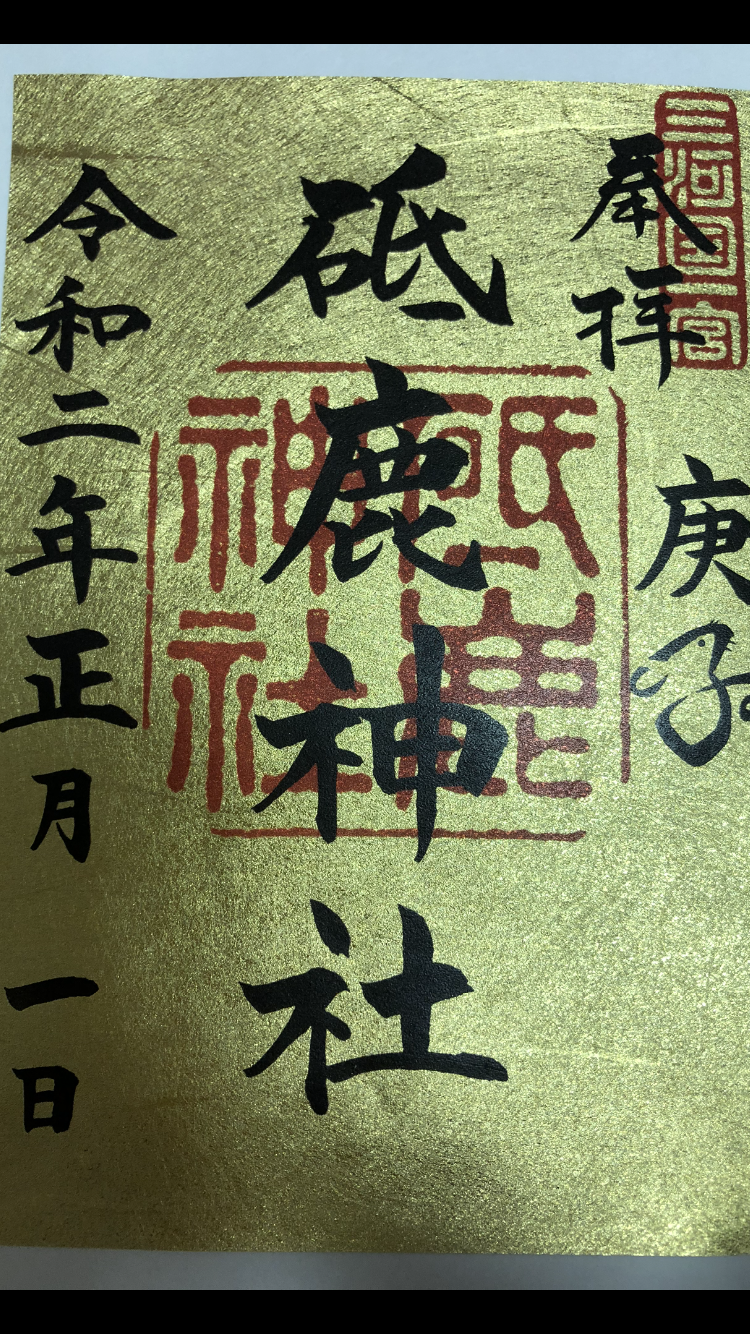 三河国一宮
奉拝
庚子
砥鹿神社
砥鹿神社
令和二年正月一日